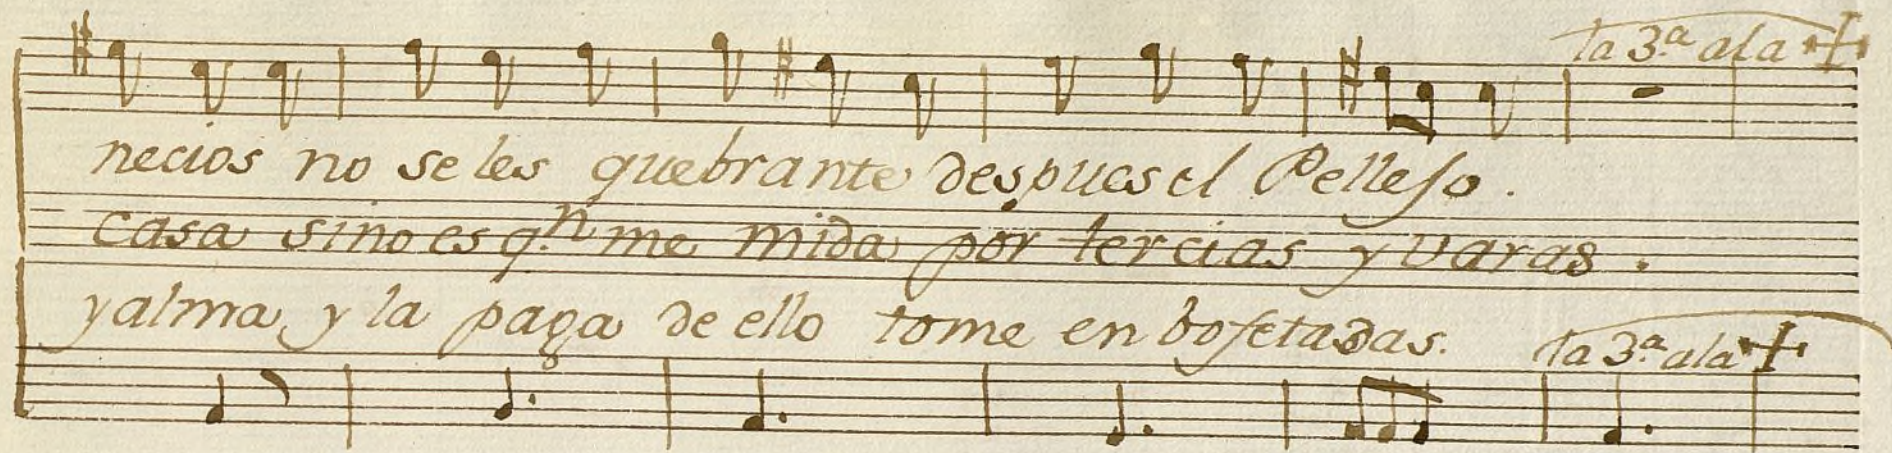 la 3.ª ala
necios no se les quebrante despues el Pellejo.
casa sino es q.n me mida por tercias y varas.
y alma y la paga de ello tome en bofetadas.
la 3.ª ala